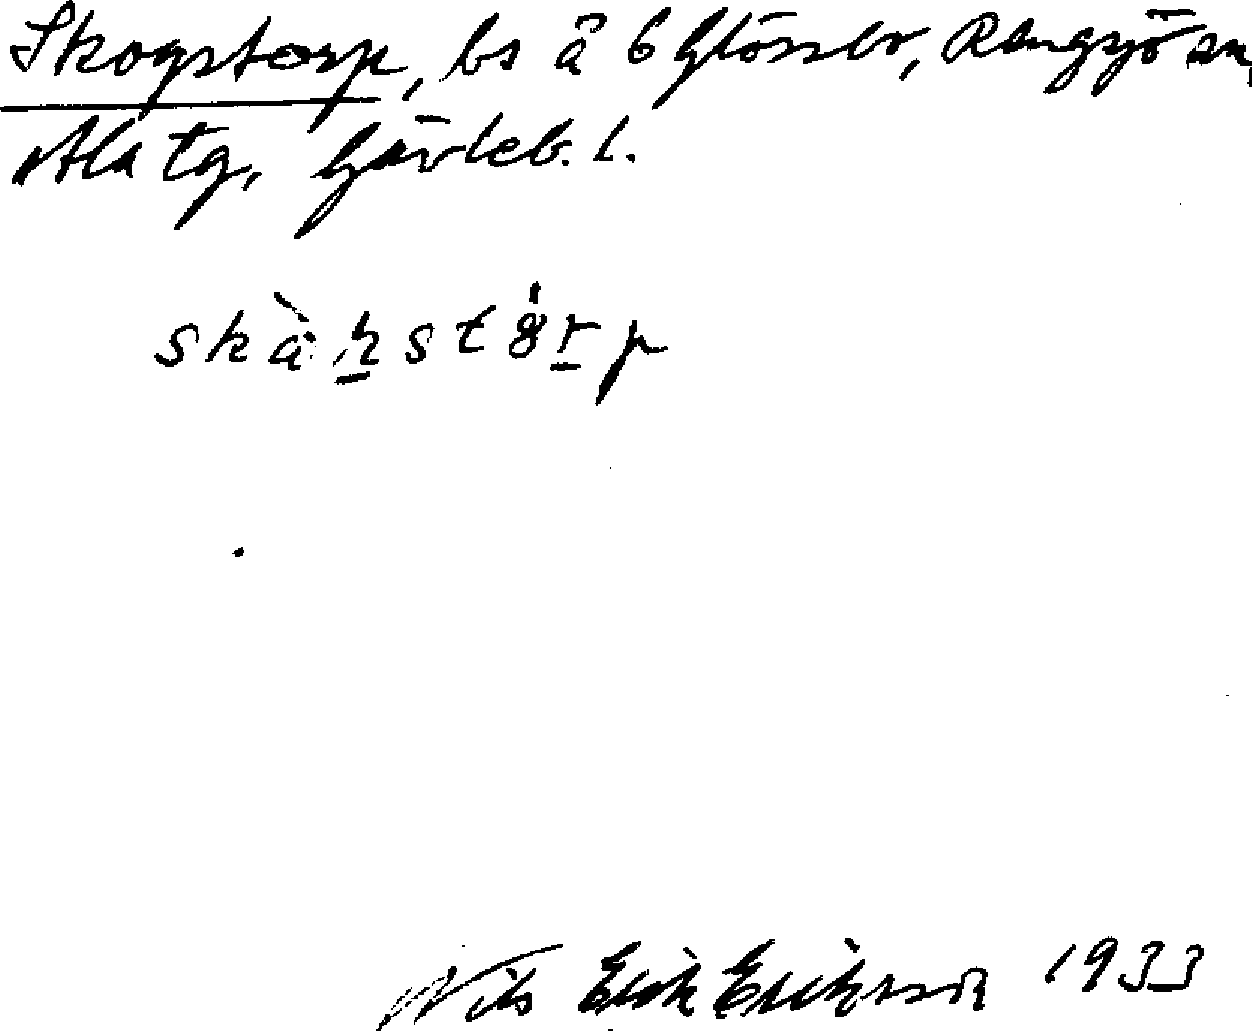 Skogstorp, bs å 6 Glössbo, Rengsjö sn,
Ala tg, Gävleb. l.
Nils Erik Eriksson 1933